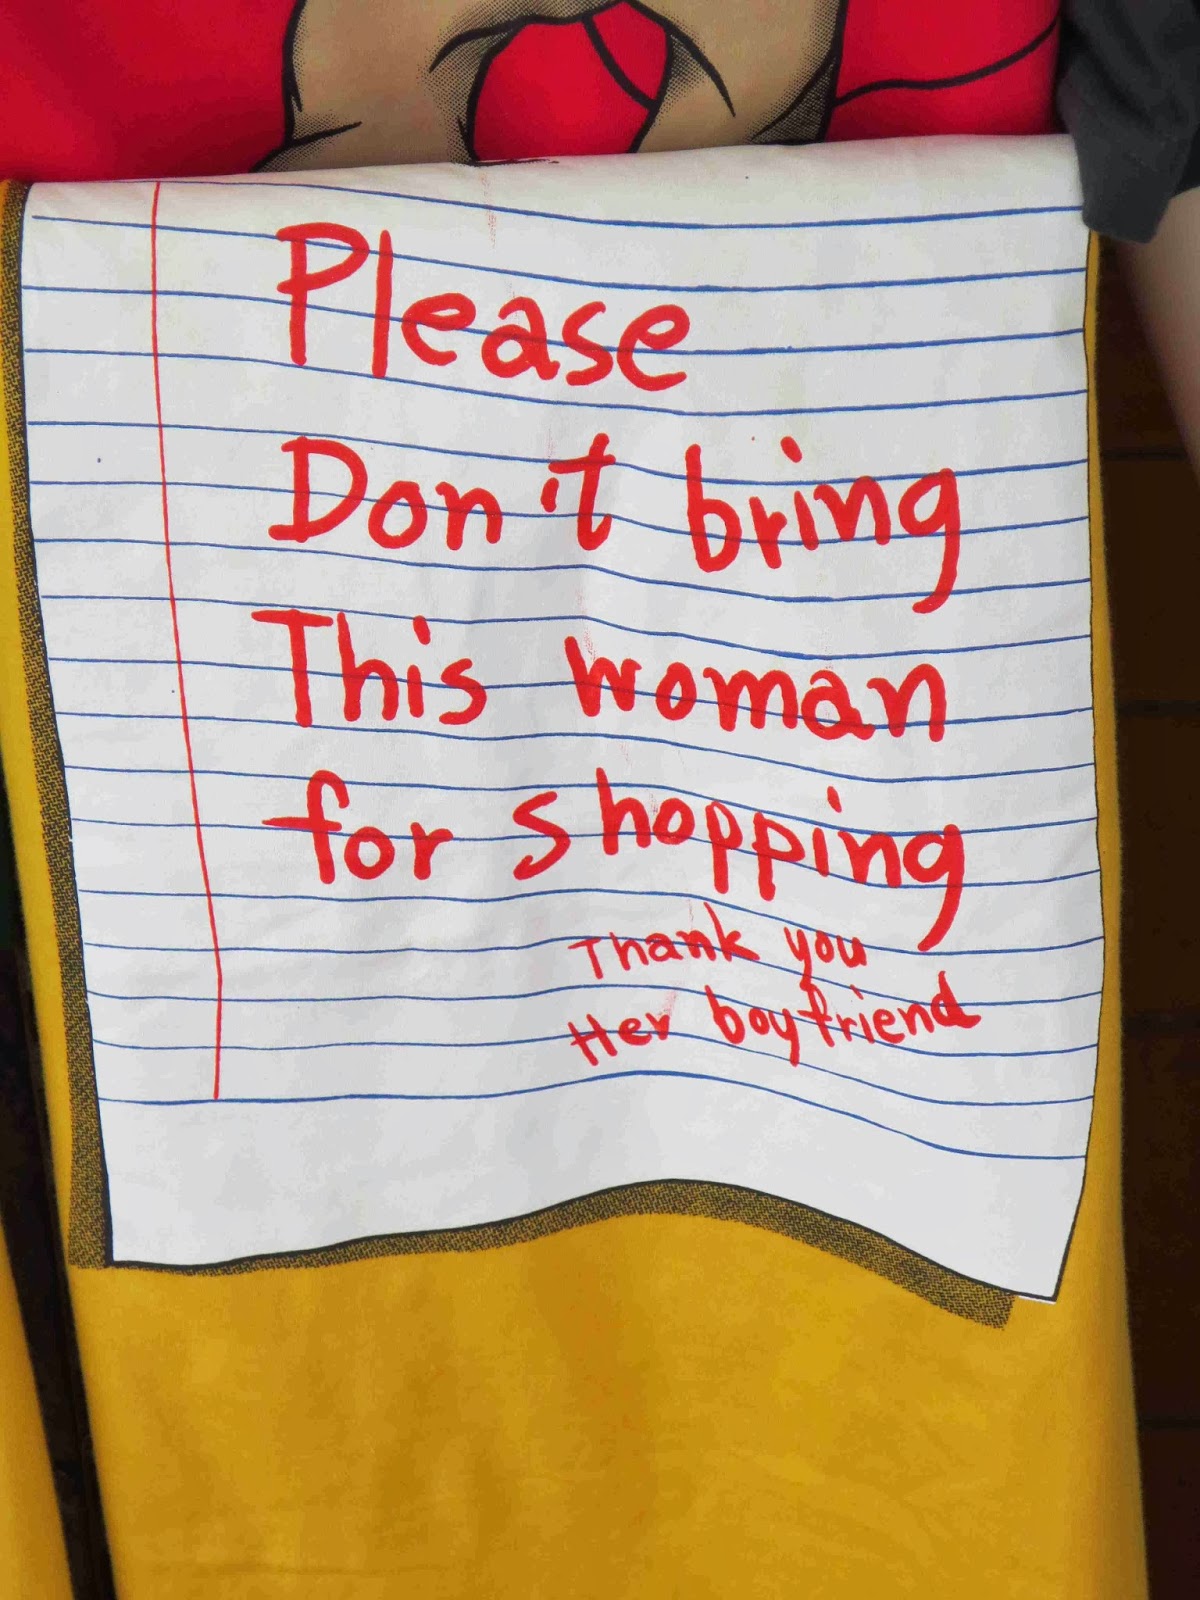 Please
Don't bring
This woman
for shopping
Thank you
Her boyfriend